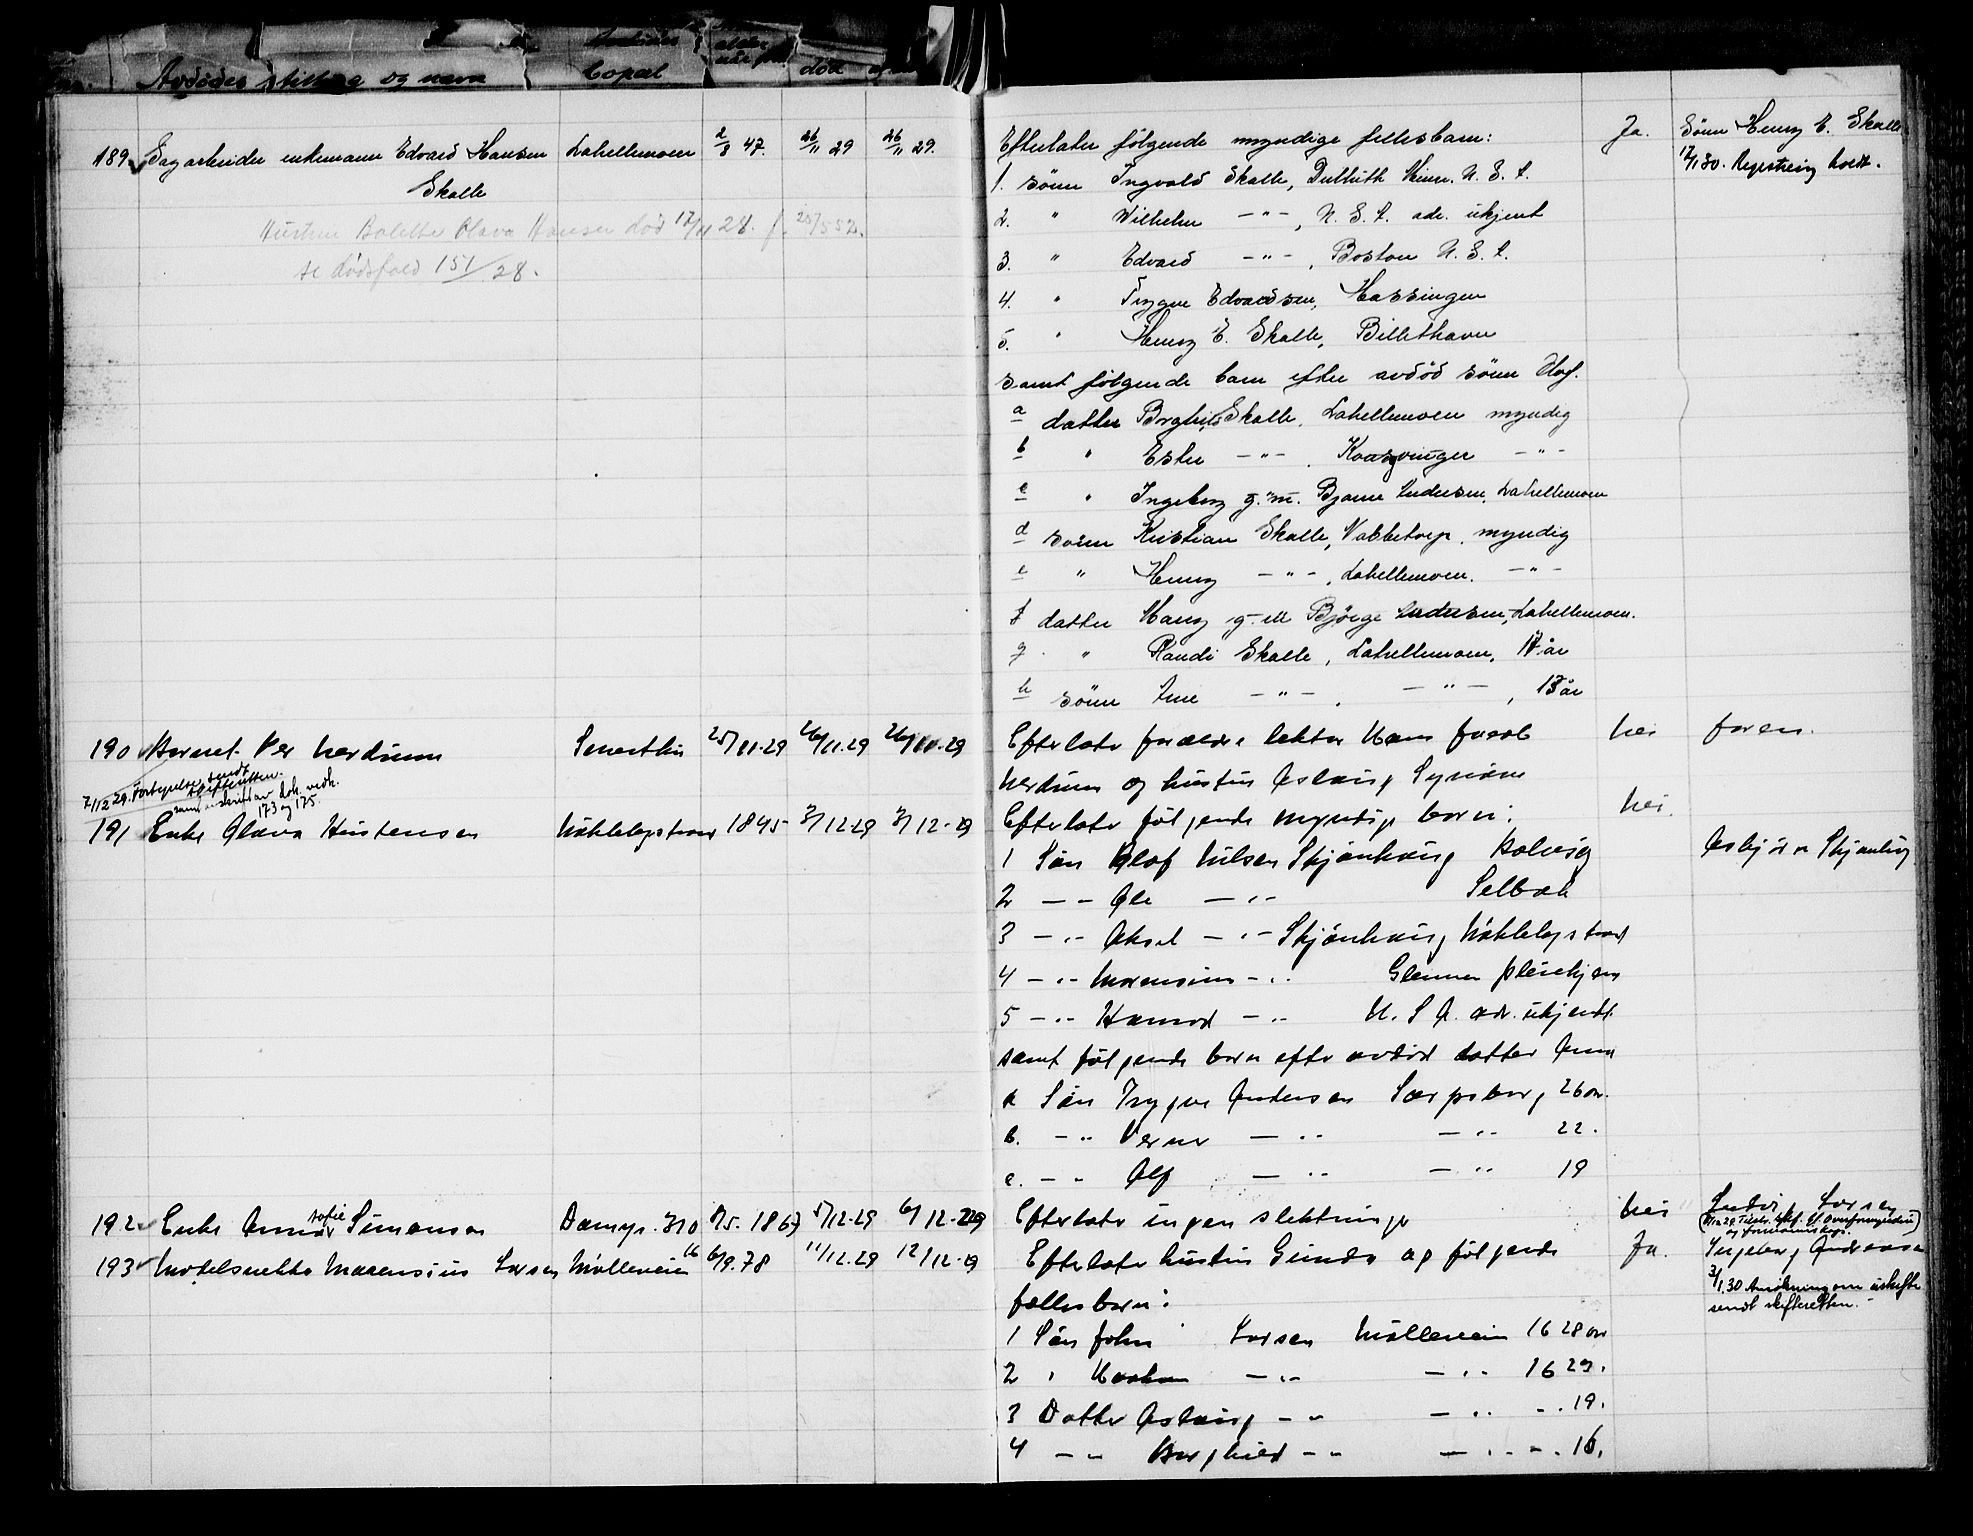 Avdødes stilling og navn Bopæl død
189 Sagarbeider enkemann Edvard Hansen Lahellemoen 2/8 47. 26/11 29 26/11 29.
Skalle
Hustru Bolette Olava Hansen død 17/11 28. f. 52.
se dødsfald 151/28.
190 Barnet Per Nerdrum 25/11-29 26/11.29 26/11-29
7/12 29. sendt
skifteretten.
173 og 175.
191 Enke Olava Kristensen Nøklebystrand 1845 3/12-29 3/12-29
192 Enke Anna Sofie Simensen Damyr. 310 8/5. 1867 5/12-29 6/12-29
193 Modelsnekker Marensius Larsen Mølleveien 16 6/9.78 11/12.29 12/12-29
Efterlater følgende myndige fellesbarn: Ja. Sønn Henry E. Skalle
1. sønn Ingvald Skalle, Dulluth Minn. U. S. A. 17/1 30. Registrering holdt.
2. " Wilhelm -"-, U. S. A. adr. ukjent
3. " Edvard -"-, Boston U. S. A.
4. " Trygve Edvardsen, Hassingen
5. " Henry E. Skalle, Billethavn
samt følgende barn efter avdød sønn Olaf.
a datter Borghild Skalle, Lahellemoen myndig
b " Ester -"-, Kongsvinger -"-
c " Ingeborg g.m. Bjarne Andersen, Lahellemoen
d sønn Kristian Skalle, Vabbetorp, myndig
e " Henry -"-, Lahellemoen. -"-
f datter Mary g.m Børge Andersen, Lahellemoen.
g " Randi Skalle, Lahellemoen, 17 år
h sønn Arne -"-, -"-, 13 år
Efterlater forældre lektor Hans Jacob Nei faren.
Nerdrum og hustru Aslaug Synnøve
Efterlater følgende myndige barn: Nei.
1 Søn Olof Nilsen Skjønhaug Rolvsøy Asbjørn Skjønhaug
2 -"- Ole -"- Selbak
3 -"- Aksel -"- Skjønhaug Nøklebystrand
4 -"- Marensius -"- Glemmen pleiehjem
5 -"- Harald -"- U. S. A. adr. ukjendt
samt følgende barn efter avdød datter Anna
a Søn Trygve Andersen Sarpsborg 26 år.
b. -"- Verner -"- -"- 22.
c. -"- Alf -"- -"- 19
Efterlater ingen slektninge Nei Ludvig Larsen
Efterlater hustru Gunda og følgende Ja. Ingeborg Andreassen
fællesbarn: 3/1.30 Ansökning om uskifte
sendt skifteretten.
1 Søn John Larsen Mølleveien 16 28 år
2 " Haakon -"- -"- 16 23.
3 Datter Aslaug -"- -"- -"- 19.
4 -"- Borghild -"- -"- -"- 16.